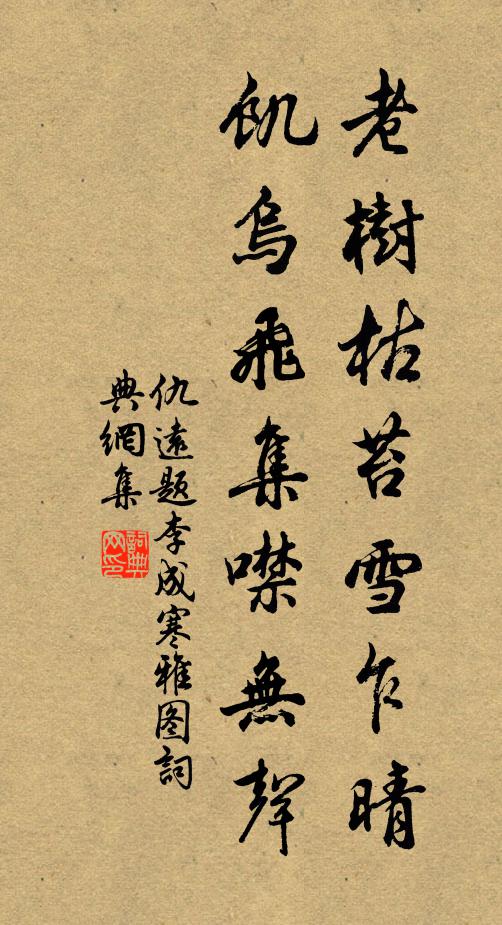 老樹枯苔雪乍晴
飢烏飛集噤無聲
仇遠題李成寒雅图詞
典網集
詞典
网印